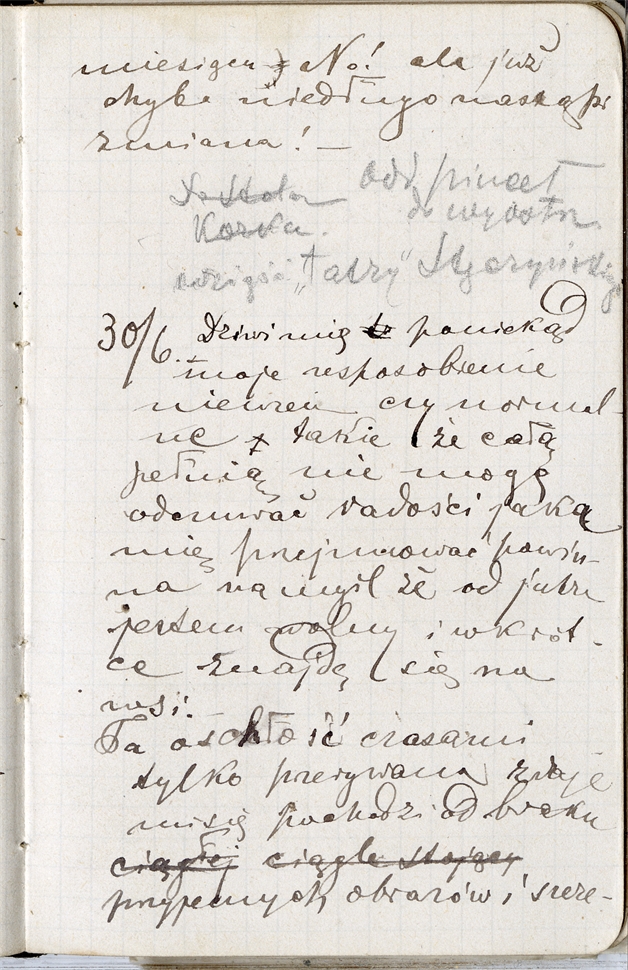 miesiąca. No! ale już
chyba niedługo nastąpi
zmiana! —
Do Stola
Korka.
Odd pincet
do wyostrz.
odzigść „Tatry" Stęczyńskiego
30/6. Dziwi mię to poniekąd
moje usposobienie
niewiem czy normal-
ne takie że całą
pełnią nie mogę
odczuwać radości jaką
mię przejmować powin-
na na myśl że od jutra
jestem wolny i wkrót-
ce znajdę się na
wsi. —
Ta oschłość czasami
tylko przerywana zdaje
misię pochodzi od braku
ciągłej ciągle stojącej
przyjemnych obrazów i szcze-